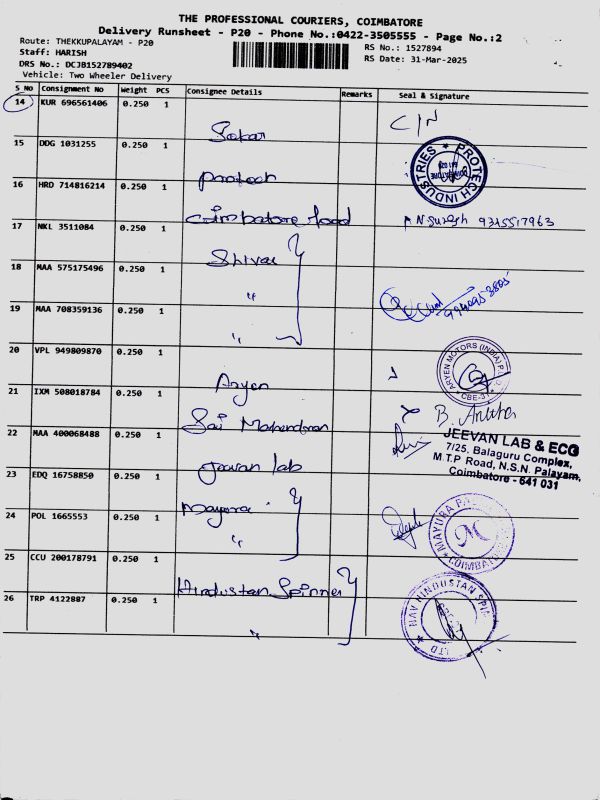 THE PROFESSIONAL COURIERS, COIMBATORE
Delivery Runsheet - P20 - Phone No.:0422-3505555 - Page No.:2
Route: THEKKUPALAYAM - P20
RS No.: 1527894
Staff: HARISH
RS Date: 31-Mar-2025
DRS No.: DCJB152789402
Vehicle: Two Wheeler Delivery
S NO Consignment No Weight PCS Consignee Details Remarks Seal & Signature
14 KUR 696561406 0.250 1
C/N
15 DDG 1031255 0.250 1
PROTECH INDUSTRIES
COIMBATORE
16 HRD 714816214 0.250 1
Protech
Coimbatore food
17 NKL 3511084 0.250 1
18 MAA 575175496 0.250 1
"
19 MAA 708359136 0.250 1
"
20 VPL 949809870 0.250 1
Aryen
ARYEN MOTORS (INDIA) P.
CBE-31
21 IXM 508018784 0.250 1
Sai Mahendran
22 MAA 400068488 0.250 1
Jeevan lab
JEEVAN LAB & ECG
7/25, Balaguru Complex,
M.T.P Road, N.S.N. Palayam,
Coimbatore - 641 031
23 EDQ 16758850 0.250 1
Mayura
24 POL 1665553 0.250 1
"
MAYURA
M
COIMBATORE
25 CCU 200178791 0.250 1
Hindustan Spinner
26 TRP 4122887 0.250 1
"
NAV HINDUSTAN SPIN
LTD